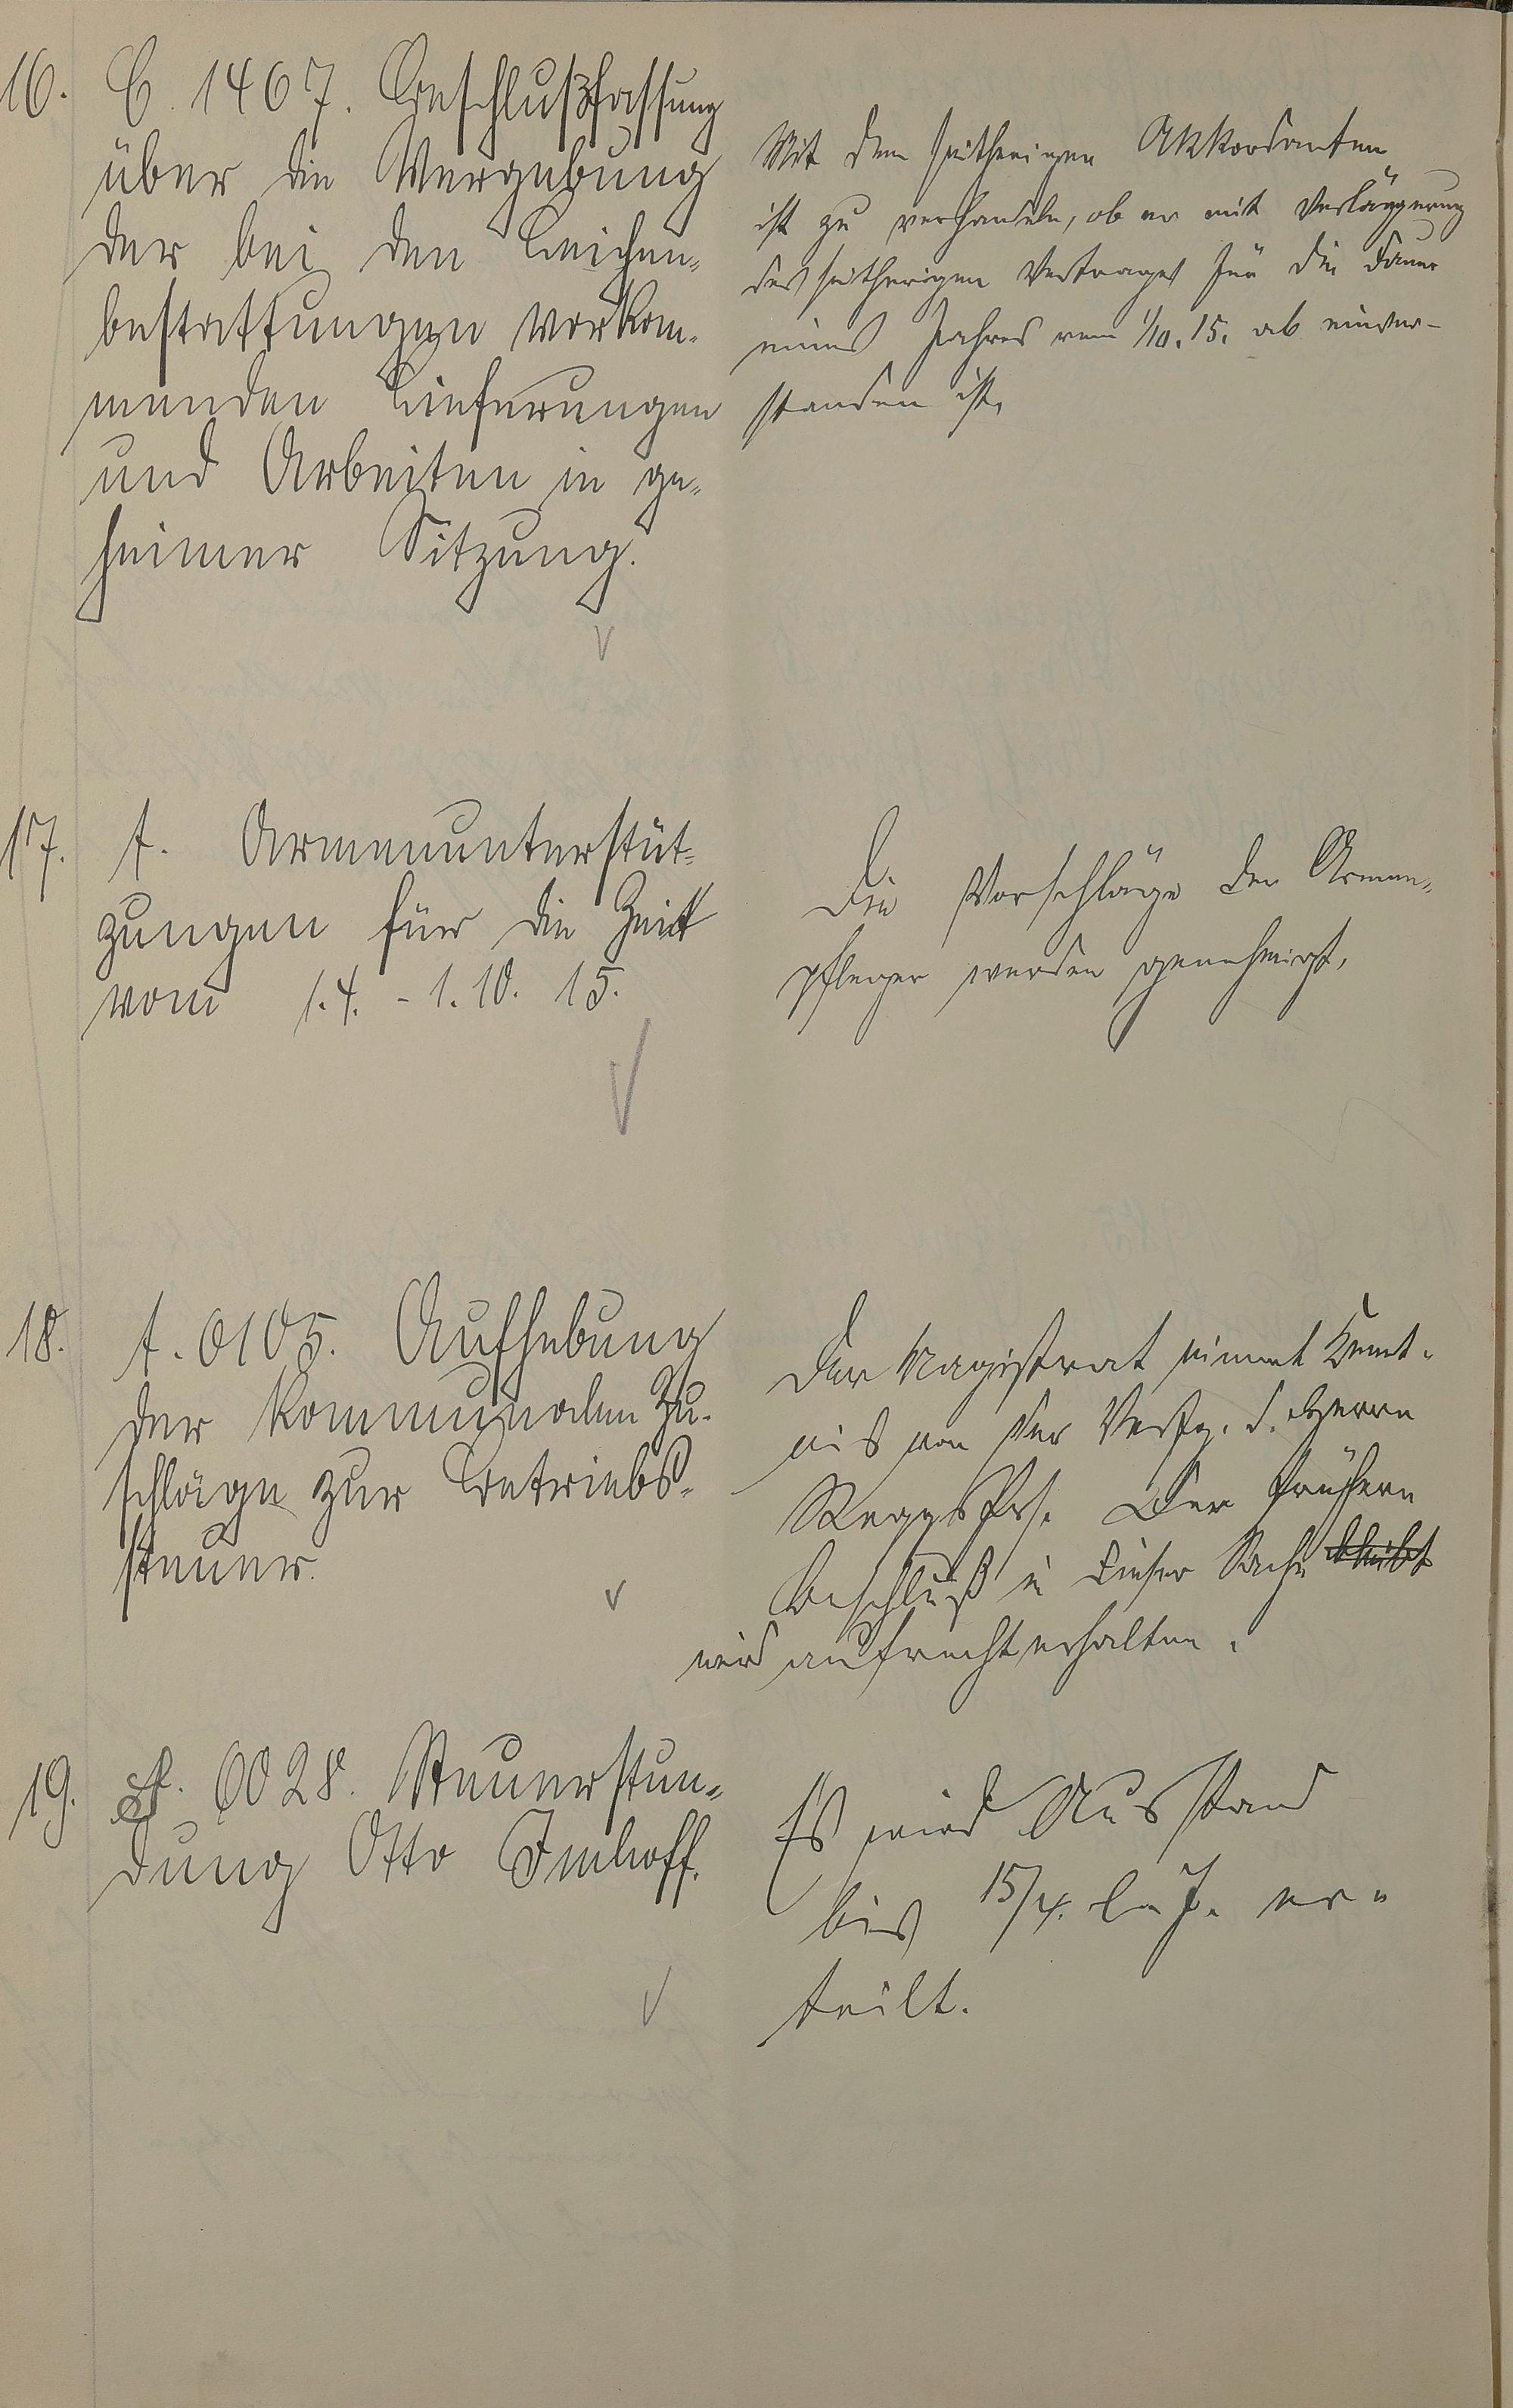 16. C. 1467. Beschlußfassung
über die Vergebung
der bei den Leichen-
bestattungen vorkom-
menden Lieferungen
und Arbeiten in ge-
heimer Sitzung.
Mit dem seitherigen Akkordanten
ist zu verhandeln, ob er mit Verlängerung
des seitherigen Vertrages für die Dauer
eines Jahres vom 1/10. 15. ab einver-
standen ist.
17. A. Armenunterstüt-
zungen für die Zeit
vom 1.4. - 1.10. 15.
Die Vorschläge der Armen-
pfleger werden genehmigt.
18. A. 0105. Aufhebung
der kommunalen Zu-
schläge zur Betriebs-
steuer.
Der Magistrat nimmt Kennt-
nis von der Verfg. d. Herrn
RegsPrs. Der frühere
Beschluß in dieser Sache bleibt
wird aufrechterhalten.
19. St. 0028. Steuerstun-
dung Otto Imhoff.
Es wird Ausstand
bis 15/4. l. J. er-
teilt.